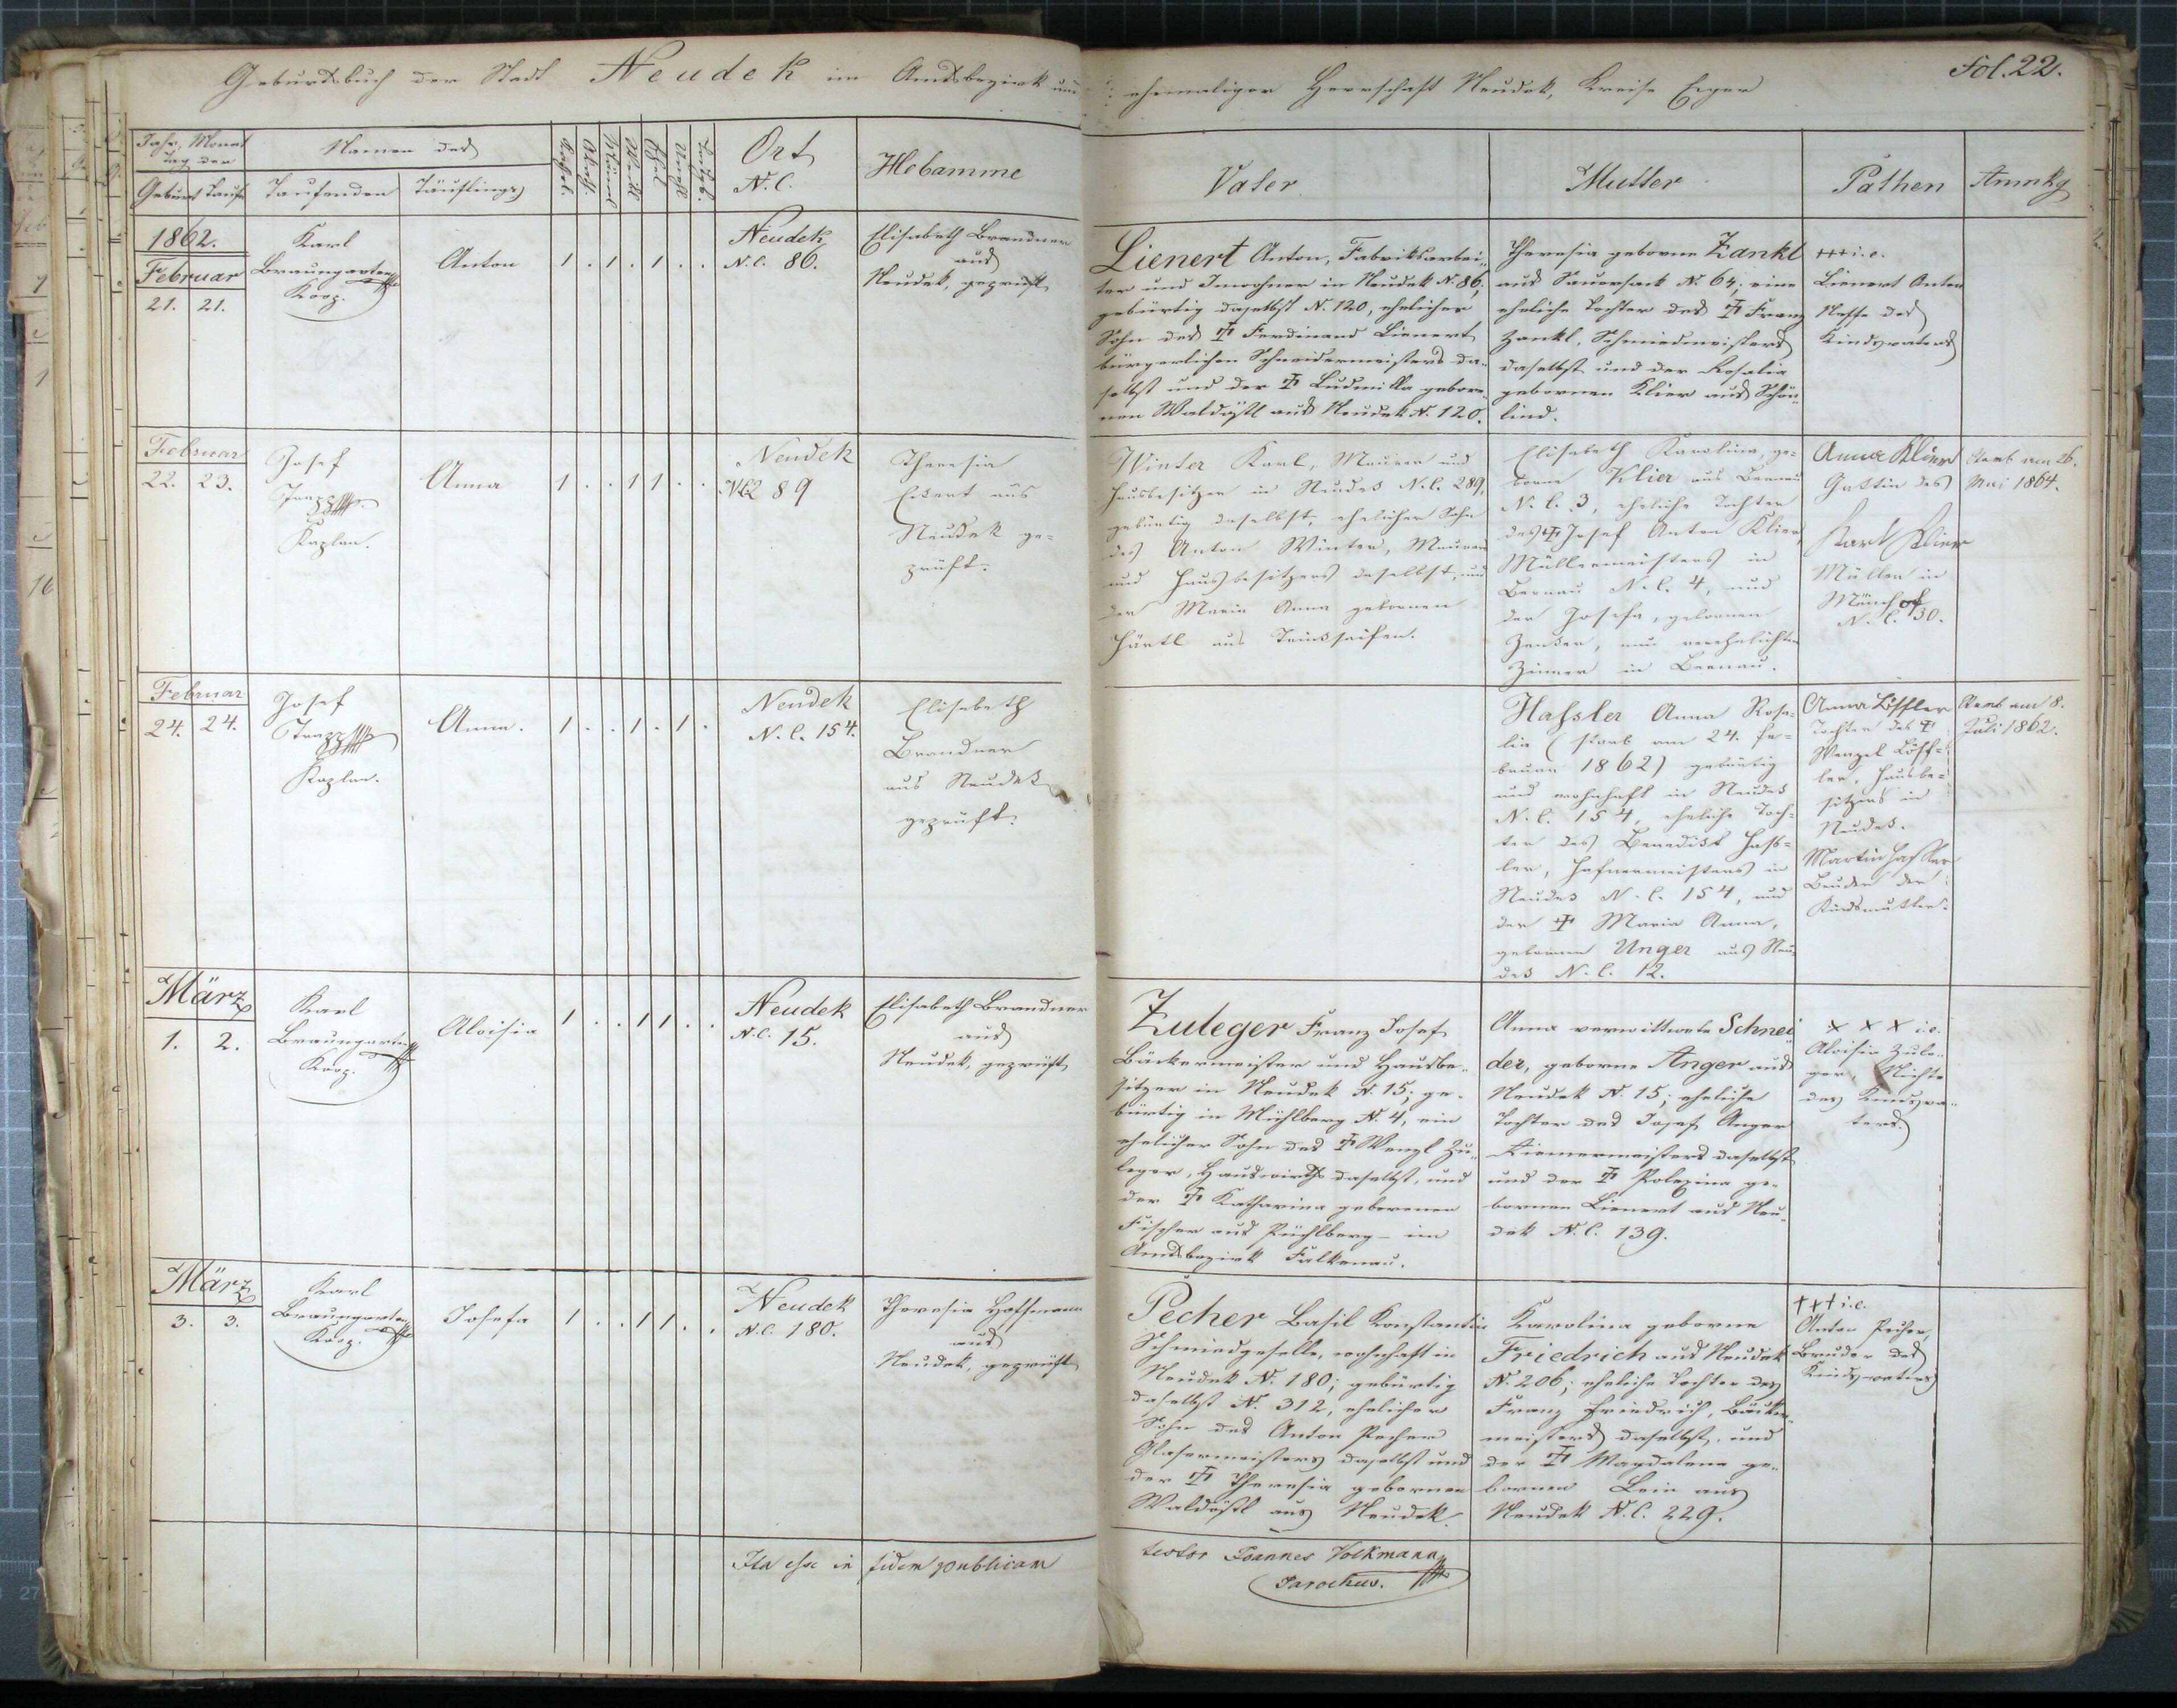 Geburtsbuch der Stadt Neudek im Amtsbezirk und
ehemaliger Herrschaft Neudek, Kreise Eger
Fol. 22.
Jahr, Monat
Tag der
Geburt Taufe
Namen des
Taufenden Täuflings
Kathol.
Ort
N. C.
Hebamme
Vater
Mutter
Pathen
Anmkg
1862.
Februar
21. 21.
Karl
Braungarten
Koop.
Anton
1 . 1 . 1 . .
Neudek
N. C. 86.
Elisabeth Brandner
aus
Neudek, geprüft
Lienert Anton, Fabriksarbei„
ter und Inwohner in Neudek N. 86;
gebürtig daselbst N. 120, ehelicher
Sohn des Ferdinand Lienert
bürgerlichen Schneidermeisters da„
selbst und der Ludmilla gebore„
nen aus Neudek N. 120.
Theresia geborne Zankl
aus Sauersack N. 64; eine
eheliche Tochter des Franz
Zankl, Schmiedmeisters
daselbst und der Rosalia
gebornen Klier aus Schön„
lind.
+++ i. e.
Lienert Anton
Neffe des
Kindsvaters
Februar
22. 23.
Josef
Kaplan.
Anna
1 . . 1 1 . .
Neudek
289
Theresia
aus
Neudek ge=
prüft.
Winter Karl, Maurer und
Hausbesitzer in Neudek N. C. 289,
gebürtig daselbst, ehelicher Sohn
des Anton Winter, Maurers
und Hausbesitzers daselbst, und
der Maria Anna gebornen
Härtl aus Trinksaifen.
Elisabeth Karolina, ge=
borne Klier aus Bernau
N. C. 3, eheliche Tochter
des Josef Anton Klier,
Müllermeisters in
Bernau N. C. 4, und
der Josefa, gebornen
Zenker, nun verehelichten
Zinner in Bernau.
Anna Klier
Gattin des
Karl Klier
Müller in
Münchof
N. C. 30.
Starb am 26.
Mai 1864.
Februar
24. 24.
Josef
Kaplan.
Anna.
1 . . 1 . 1 .
Neudek
N. C. 154.
Elisabeth
Brandner
aus Neudek
geprüft.
Hassler Anna Rosa=
lia (starb am 24. Fe=
bruar 1862) gebürtig
und wohnhaft in Neudek
N. C. 154, eheliche Toch=
ter des Benedikt Hass=
ler, Hafnermeisters in
Neudek N. C. 154, und
der Maria Anna,
gebornen Unger aus Neu=
dek N. C. 12.
Anna Löffler
Tochter des
Wenzel Löff=
ler, Hausbe=
sitzers in
Neudek.
Martin Hassler
Bruder der
Kindsmutter.
Starb am 8.
Juli 1862.
März
1. 2.
Karl
Braungarten
Koop.
Aloisia
1 . . 1 1 . .
Neudek
N. C. 15.
Elisabeth Brandner
aus
Neudek, geprüft
Zuleger Franz Josef
Bäckermeister und Hausbe„
sitzer in Neudek N. 15; ge„
bürtig in Mühlberg N. 4, ein
ehelicher Sohn des Wenzl Zu„
leger, Hauswirths daselbst, und
der Katharina geborenen
Fischer aus Pichlberg - im
Amtsbezirk Falkenau.
Anna verwittwete Schnei„
der, geborne Anger aus
Neudek N. 15; eheliche
Tochter des Josef Anger
Riemermeisters daselbst
und der Polexina ge„
bornen Lienert aus Neu„
dek N. C. 139.
x x x i. e.
Aloisia Zule„
ger, Nichte
des Kindsva„
ters.
März
3. 3.
Karl
Braungarten
Koop.
Josefa
1 . . 1 1 . .
Neudek
N. C. 180.
Theresia Hoffmann
aus
Neudek, geprüft
Pecher Basil Konstantin
Schmiedgeselle, wohnhaft in
Neudek N. 180; gebürtig
daselbst N. 312, ehelicher
Sohn des Anton Pecher
Glasermeisters daselbst und
der Theresia gebornen
aus Neudek.
Karolina geborne
Friedrich aus Neudek
N. 206; eheliche Tochter des
Franz Friedrich, Bäcker„
meisters daselbst und
der Magdalena ge„
bornen Lein aus
Neudek N. C. 229.
+++ i. e.
Anton Pecher,
Bruder des
Kindsvaters
Ita esse in fidem publicam
testor Joannes Volkmann
Parochus.